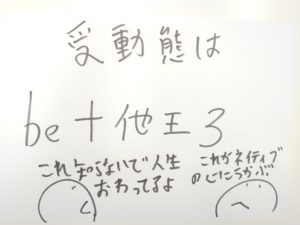 受動態は
be十他王3
これ知らないで人生
おわってるよ
これがネイティブ